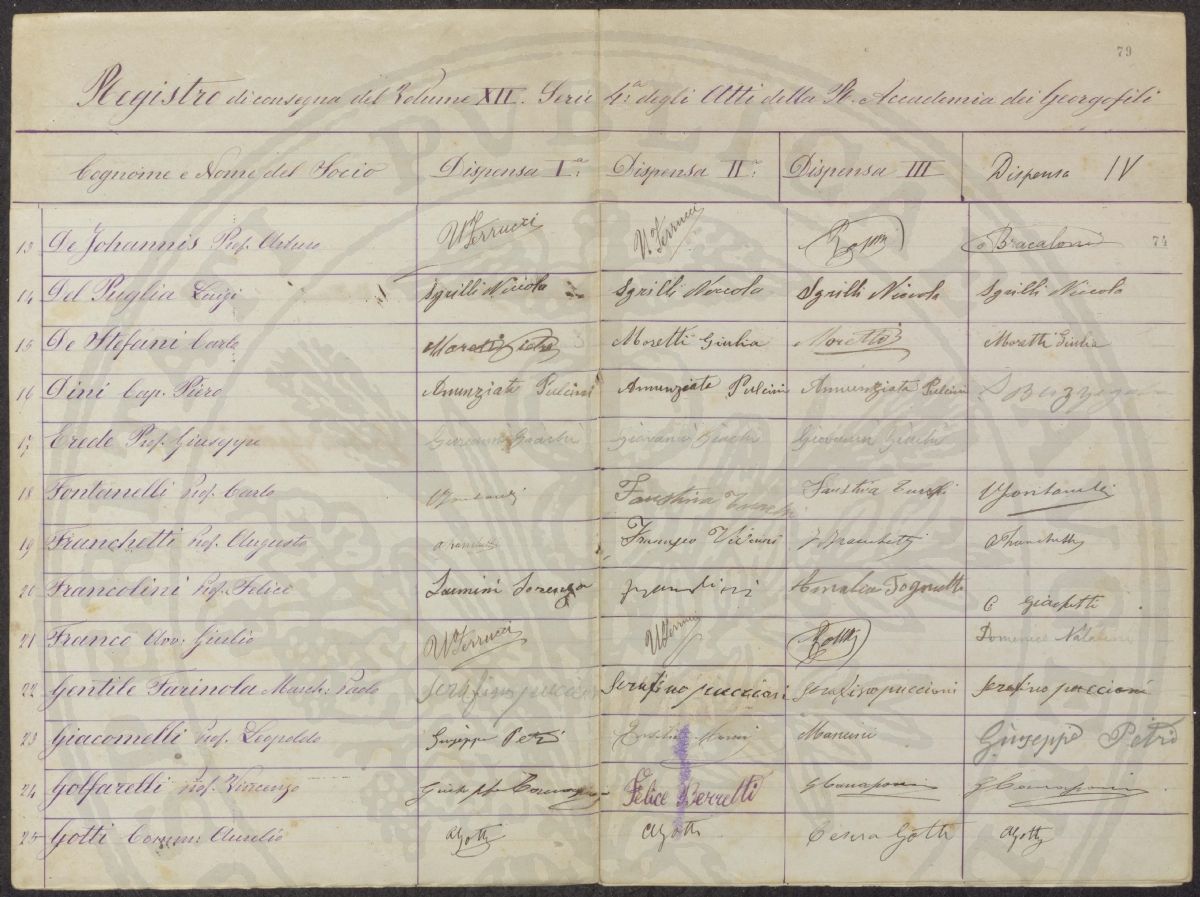 79
Registro di consegna del Volume XII. Serie 4.a degli Atti della R. Accademia dei Georgofili
Cognome e Nome del Socio Dispensa I.a Dispensa II.a Dispensa III Dispensa IV
13 De Johannis Prof. Arturo U. Ferrucci U. Ferrucci Bracaloni 74
14 Del Puglia Luigi Sgrilli Niccola Sgrilli Niccola Sgrilli Niccola Sgrilli Niccola
15 De Stefani Carlo Moretti Giulia Moretti Giulia Moretti Moretti Giulia
16 Dini Cap. Piero Anunziata Pulcini Annunziata Pulcini Annunziata Pulcini
17 Erede Prof. Giuseppe Giovanni Giachi Giovanni Giachi Giovanni Giachi
18 Fontanelli Prof. Carlo CFontanelli Faustina Faustina CFontanelli
19 Franchetti Prof. Augusto AFranchetti Franchetti AFranchetti
20 Francolini Prof. Felice Lorenzo Amalia Tognetti
21 Franco Avv. Giulio U. Ferrucci U. Ferrucci Domenico
22 Gentile Farinola March: Paolo Serafino puccioni Serafino puccioni Serafino puccioni Serafino puccioni
23 Giacomelli Prof. Leopoldo Giuseppe Petri Mancini Giuseppe Petri
24 Golfarelli Prof. Vincenzo Giuseppe Felice Berretti
25 Gotti Comm: Aurelio AGotti AGotti Cesira Gotti AGotti
PVBLICA